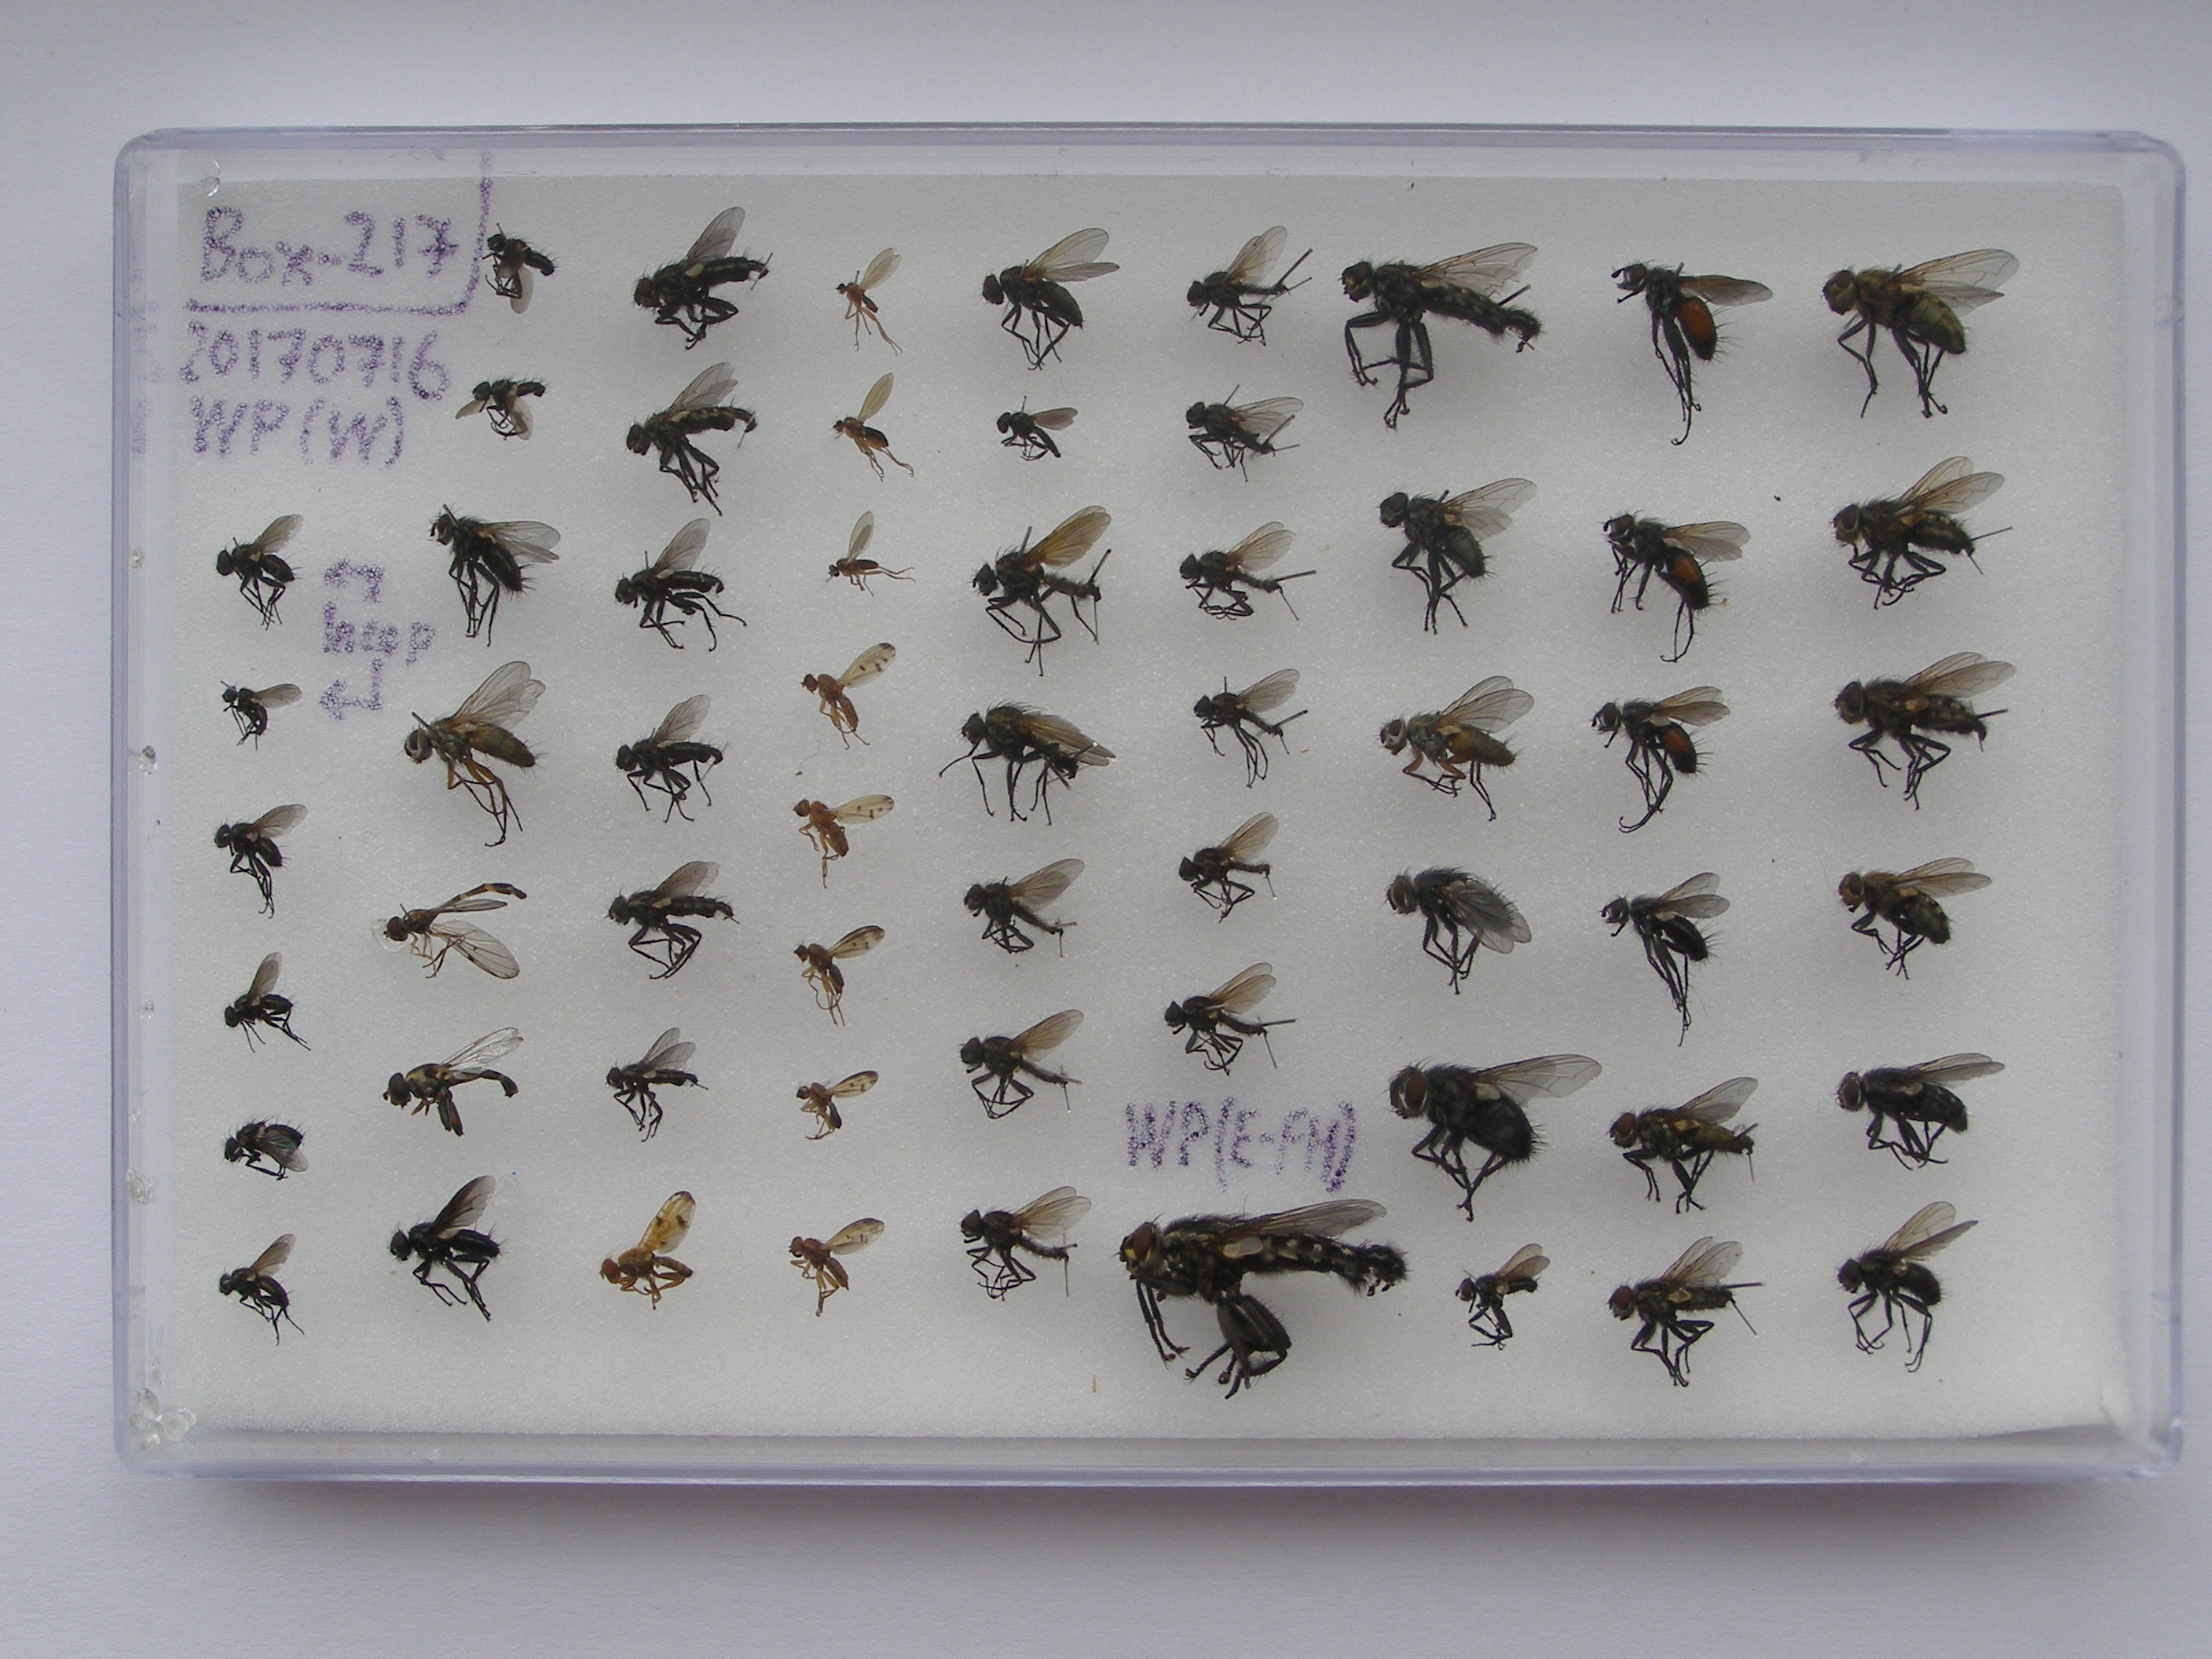 Box-217
20170716
WP(W)
hwp
WP(E-FM)